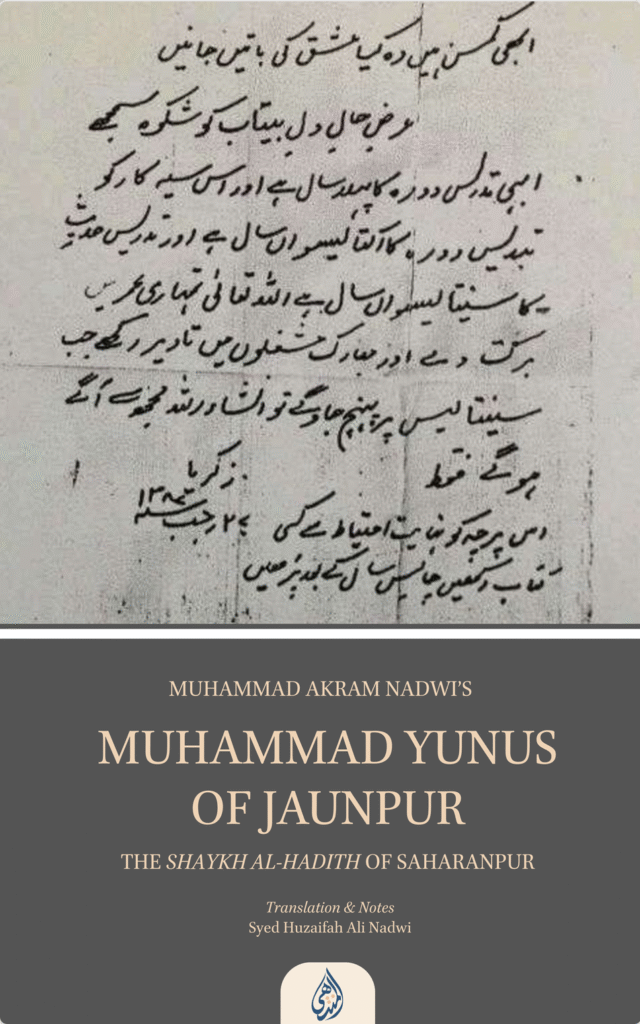 ابھی کمسن ہیں وہ کیا عشق کی باتیں جانیں
عرض حال دل بیتاب کو شکوہ سمجھے
ابھی تدریس دورہ کا پہلا سال ہے اور اس سیہ کار کو
تدریس دورہ کا اکتالیسواں سال ہے اور تدریس حدیث
کا سینتالیسواں سال ہے اللہ تعالی تمہاری عمر میں
برکت دے اور مبارک مشغلوں میں تادیر رکھے جب
سینتالیس پر پہنچ جاوگے تو انشاء اللہ مجھ سے آگے
ہوگے فقط
زکریا
اس پرچہ کو نہایت احتیاط سے کسی
رجب
کتاب میں رکھیں چالیس سال کے بعد پڑھیں
MUHAMMAD AKRAM NADWI'S
MUHAMMAD YUNUS
OF JAUNPUR
THE SHAYKH AL-HADITH OF SAHARANPUR
Translation & Notes
Syed Huzaifah Ali Nadwi